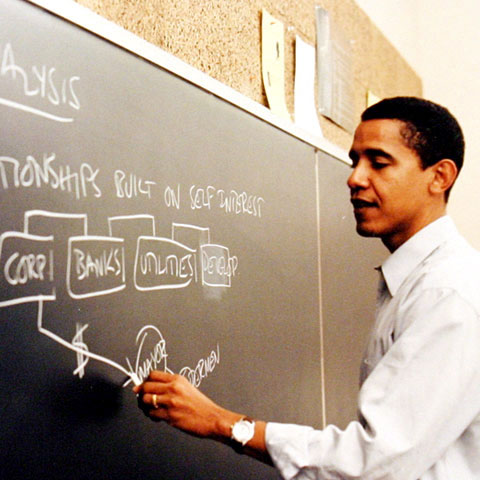 ALYSIS
TIONSHIPS BUILT ON SELF INTEREST
CORP BANKS UTILITIES DEVELOP
$
MAYOR